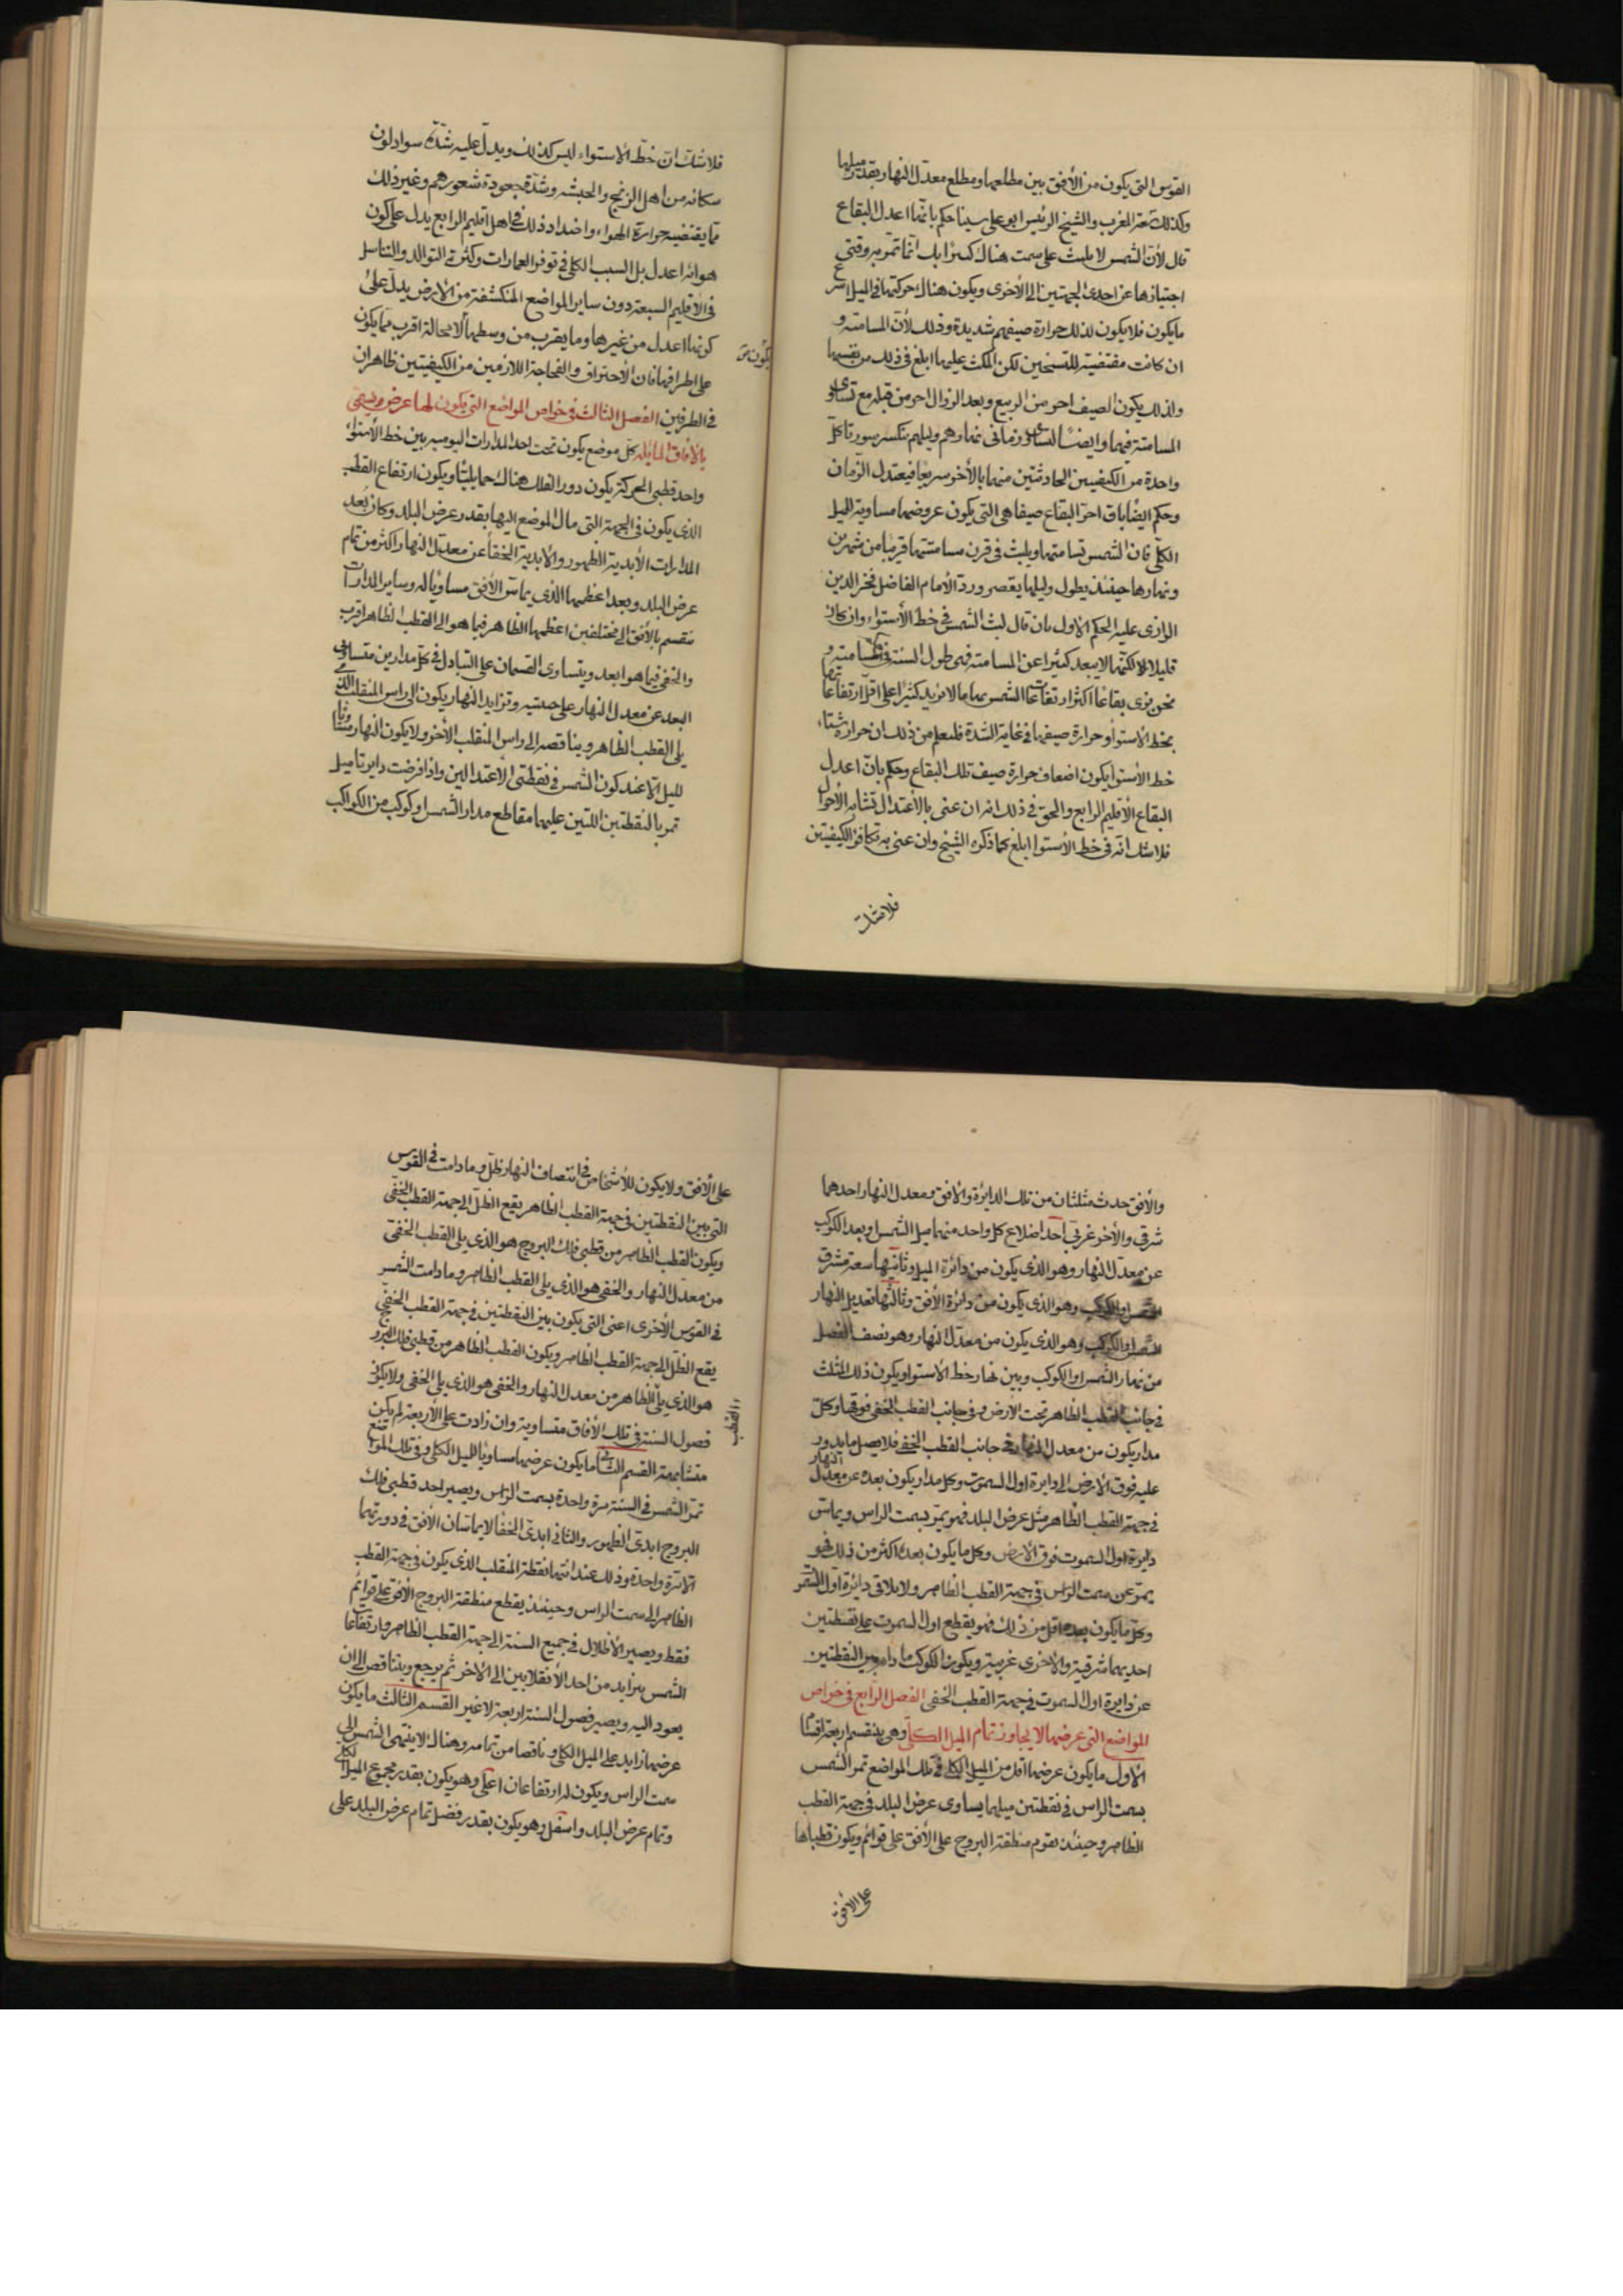 القوس التى يكون من الأفق بين مطلعها ومطلع معدل النهار بقدر ميلها
وكذلك سعة المغرب والشيخ الرئيس ابو على سينا حكم بانها اعدل البقاع
قال لأن الشمس لا يلبث على سمت هناك كثيرا بل انما تمر به وقتى
اجتيازها عن احدى الجهتين الى الأخرى ويكون هناك حركتها فى الميل اسرع
ما يكون فلا يكون لذلك حرارة صيفهم شديدة وذلك لأن المسامتة و
ان كانت مقتضية للتسخين لكن المكث عليها ابلغ فى ذلك من نفسها
ولذلك يكون الصيف احر من الربيع وبعد الزوال احر من قبله مع تساوى
المسامتة فيهما وايضًا لتساوى زمانى نهارهم وليلهم تنكسر سورة كل
واحدة من الكيفيتين الحادثتين منهما بالأخر سريعا فيعتدل الزمان
وحكم ايضا بان احر البقاع صيفا هى التى يكون عروضها مساوية للميل
الكلى فان الشمس تسامتها ويلبث فى قرب مسامتتها قريبا من شهرين
ونهارها حينئذ يطول وليلها يقصر ورد الأمام الفاضل فخر الدين
الرازى عليه الحكم الاول بان قال لبث الشمس فى خط الأستواء وان كان
قليلا الا لكنها لا يبعد كثيرا عن المسامتة فهى طول السنة فى المسامتة و
نحن نرى بقاعا اكثر ارتفاعات الشمس بها ما لا يزيد كثيرا على اقل ارتفاعاتها
بخط الأستوا وحرارة صيفها فى غاية الشدة فلنعلم من ذلك ان حرارة شتاء
خط الأستوا يكون اضعاف حرارة صيف تلك البقاع وحكم بان اعدل
البقاع الأقليم الرابع والحق فى ذلك انه ان عنى بالأعتدال تشابه الأحوال
فلا شك انه فى خط الأستوا ابلغ كما ذكره الشيخ وان عنى به تكافؤ الكيفيتين
فلا شك
فلا شك ان خط الاستواء ليس كذلك ويدل عليه شدة سواد لون
سكانه من اهل الزنج والحبشه وشدة جعودة شعورهم وغير ذلك
مما يقتضيه حرارة الهواء واضداد ذلك فى اهل اقليم الرابع يدل على كون
هوائه اعدل بل السبب الكلى فى توفر العمارات وكثرة التوالد والتناسل
فى الأقليم السبعة دون ساير المواضع المنكشفة من الارض يدل على
كونها اعدل من غيرها وما يقرب من وسطها لا محالة اقرب مما يكون
يكون من
على اطرافها فان الأحتراق والفجاجة اللازمين من الكيفيتين ظاهران
فى الطرفين الفصل الثالث فى خواص المواضع التى يكون لها عرض ويسمى
بالآفاق المايله كل موضع يكون تحت احد المدارات اليوميه بين خط الأستوا
واحد قطبى الحركة يكون دور الفلك هناك حمايليا ويكون ارتفاع القطب
الذى يكون فى الجهة التى مال الموضع اليها بقدر عرض البلد وكان بُعد
المدارات الأبدية الظهور والأبدية الخفا عن معدل النهار اكثر من تمام
عرض البلد وبعد اعظمها الذى يماس الافق مساويا له وساير المدارات
تنقسم بالأفق الى مختلفين اعظمها الظاهر فيما هو الى القطب الظاهر اقرب
والخفى فيما هو ابعد ويتساوى القسمان على التبادل فى كل مدارين متساوى
البعد عن معدل النهار على جنبتيه وتزايد النهار يكون الى راس المنقلب الذى
يلى القطب الظاهر ويناقصه الى راس المنقلب الأخر ولا يكون النهار مساويا
لليل الا عند كون الشمس فى نقطتى الاعتدالين واذا فرضت دايرتا ميل
تمر بالنقطتين اللتين عليهما مقاطع مدار الشمس او كوكب من الكواكب
والأفق حدث مثلثان من تلك الدايرة والافق ومعدل النهار احدهما
شرقى والأخر غربى احد اضلاع كل واحد منهما ميل الشمس او بعد الكوكب
عن معدل النهار وهو الذى يكون من دائرة الميل وثانيها سعة مشرق
الشمس او الكوكب وهو الذى يكون من دائرة الأفق وثالثها تعديل النهار
الشمس او الكوكب وهو الذى يكون من معدل النهار وهو نصف الفضل
من نهار الشمس او الكوكب وبين نهار خط الاستوا ويكون ذلك المثلث
فى جانب القطب الظاهر تحت الارض وفى جانب القطب الخفى فوقها وكل
مدار يكون من معدل النهار فى جانب القطب الخفى فلا يصل ما يدور
عليه فوق الارض الى دايرة اول السموت وكل مدار يكون بعده عن معدل النهار
فى جهة القطب الظاهر مثل عرض البلد فهو يمر بسمت الراس ويماس
دايرة اول السموت فوق الارض وكل ما يكون بعده اكثر من ذلك فهو
يمر عن سمت الراس فى جهة القطب الظاهر ولا يلاقى دائرة اول السموت
وكل ما يكون بعده اقل من ذلك فهو يقطع اول السموت على نقطتين
احديهما شرقية والأخرى غربية ويكون الكوكب ما دام بين النقطتين
عن دايرة اول السموت فى جهة القطب الخفى الفصل الرابع فى خواص
المواضع التى عرضها لا يجاوز تمام الميل الكلى وهى ينقسم اربعة اقسام
الاول ما يكون عرضها اقل من الميل الكلى فى تلك المواضع تمر الشمس
بسمت الراس فى نقطتين ميلهما يساوى عرض البلد فى جهة القطب
الظاهر وحينئذ تقوم منطقة البروج على الأفق على قوائم ويكون قطباها
على الافق
على الأفق ولا يكون للأشخاص فى انتصاف النهار ظل وما دامت فى القوس
التى بين النقطتين فى جهة القطب الظاهر يقع الظل الى جهة القطب الخفى
ويكون القطب الظاهر من قطبى فلك البروج هو الذى يلى القطب الخفى
من معدل النهار والخفى هو الذى يلى القطب الظاهر وما دامت الشمس
فى القوس الأخرى اعنى التى يكون بين النقطتين فى جهة القطب الخفى
يقع الظل الى جهة القطب الظاهر ويكون القطب الظاهر من قطبى فلك البروج
هو الذى يلى الظاهر من معدل النهار والخفى هو الذى يلى الخفى ولا يكون
القطب
فصول السنة فى تلك الأفاق متساوية وان زادت على الأربعة لم يكن
متشابهة القسم الثانى ما يكون عرضها مساويا لليل الكلى وفى تلك المواضع
تمر الشمس فى السنة مرة واحدة بسمت الراس ويصير احد قطبى فلك
البروج ابدى الظهور والثانى ابدى الخفا لا يماسان الأفق فى دورتهما
الا مرة واحدة وذلك عند انتها نقطة المنقلب الذى يكون فى جهة القطب
الظاهر الى سمت الراس وحينئذ يقطع منطقة البروج الأفق على قوائم
فقط ويصير الأظلال فى جميع السنة الى جهة القطب الظاهر وارتفاعات
الشمس يتزايد من احد الأنقلابين الى الاخر ثم يرجع ويتناقص الى ان
يعود اليه ويصير فصول السنة اربعة لا غير القسم الثالث ما يكون
عرضها زايدا على الميل الكلى وناقصا من تمامه وهناك لا ينتهى الشمس الى
سمت الراس ويكون له ارتفاعان اعلى وهو يكون بقدر مجموع الميل الكلى
وتمام عرض البلد واسفل وهو يكون بقدر فضل تمام عرض البلد على